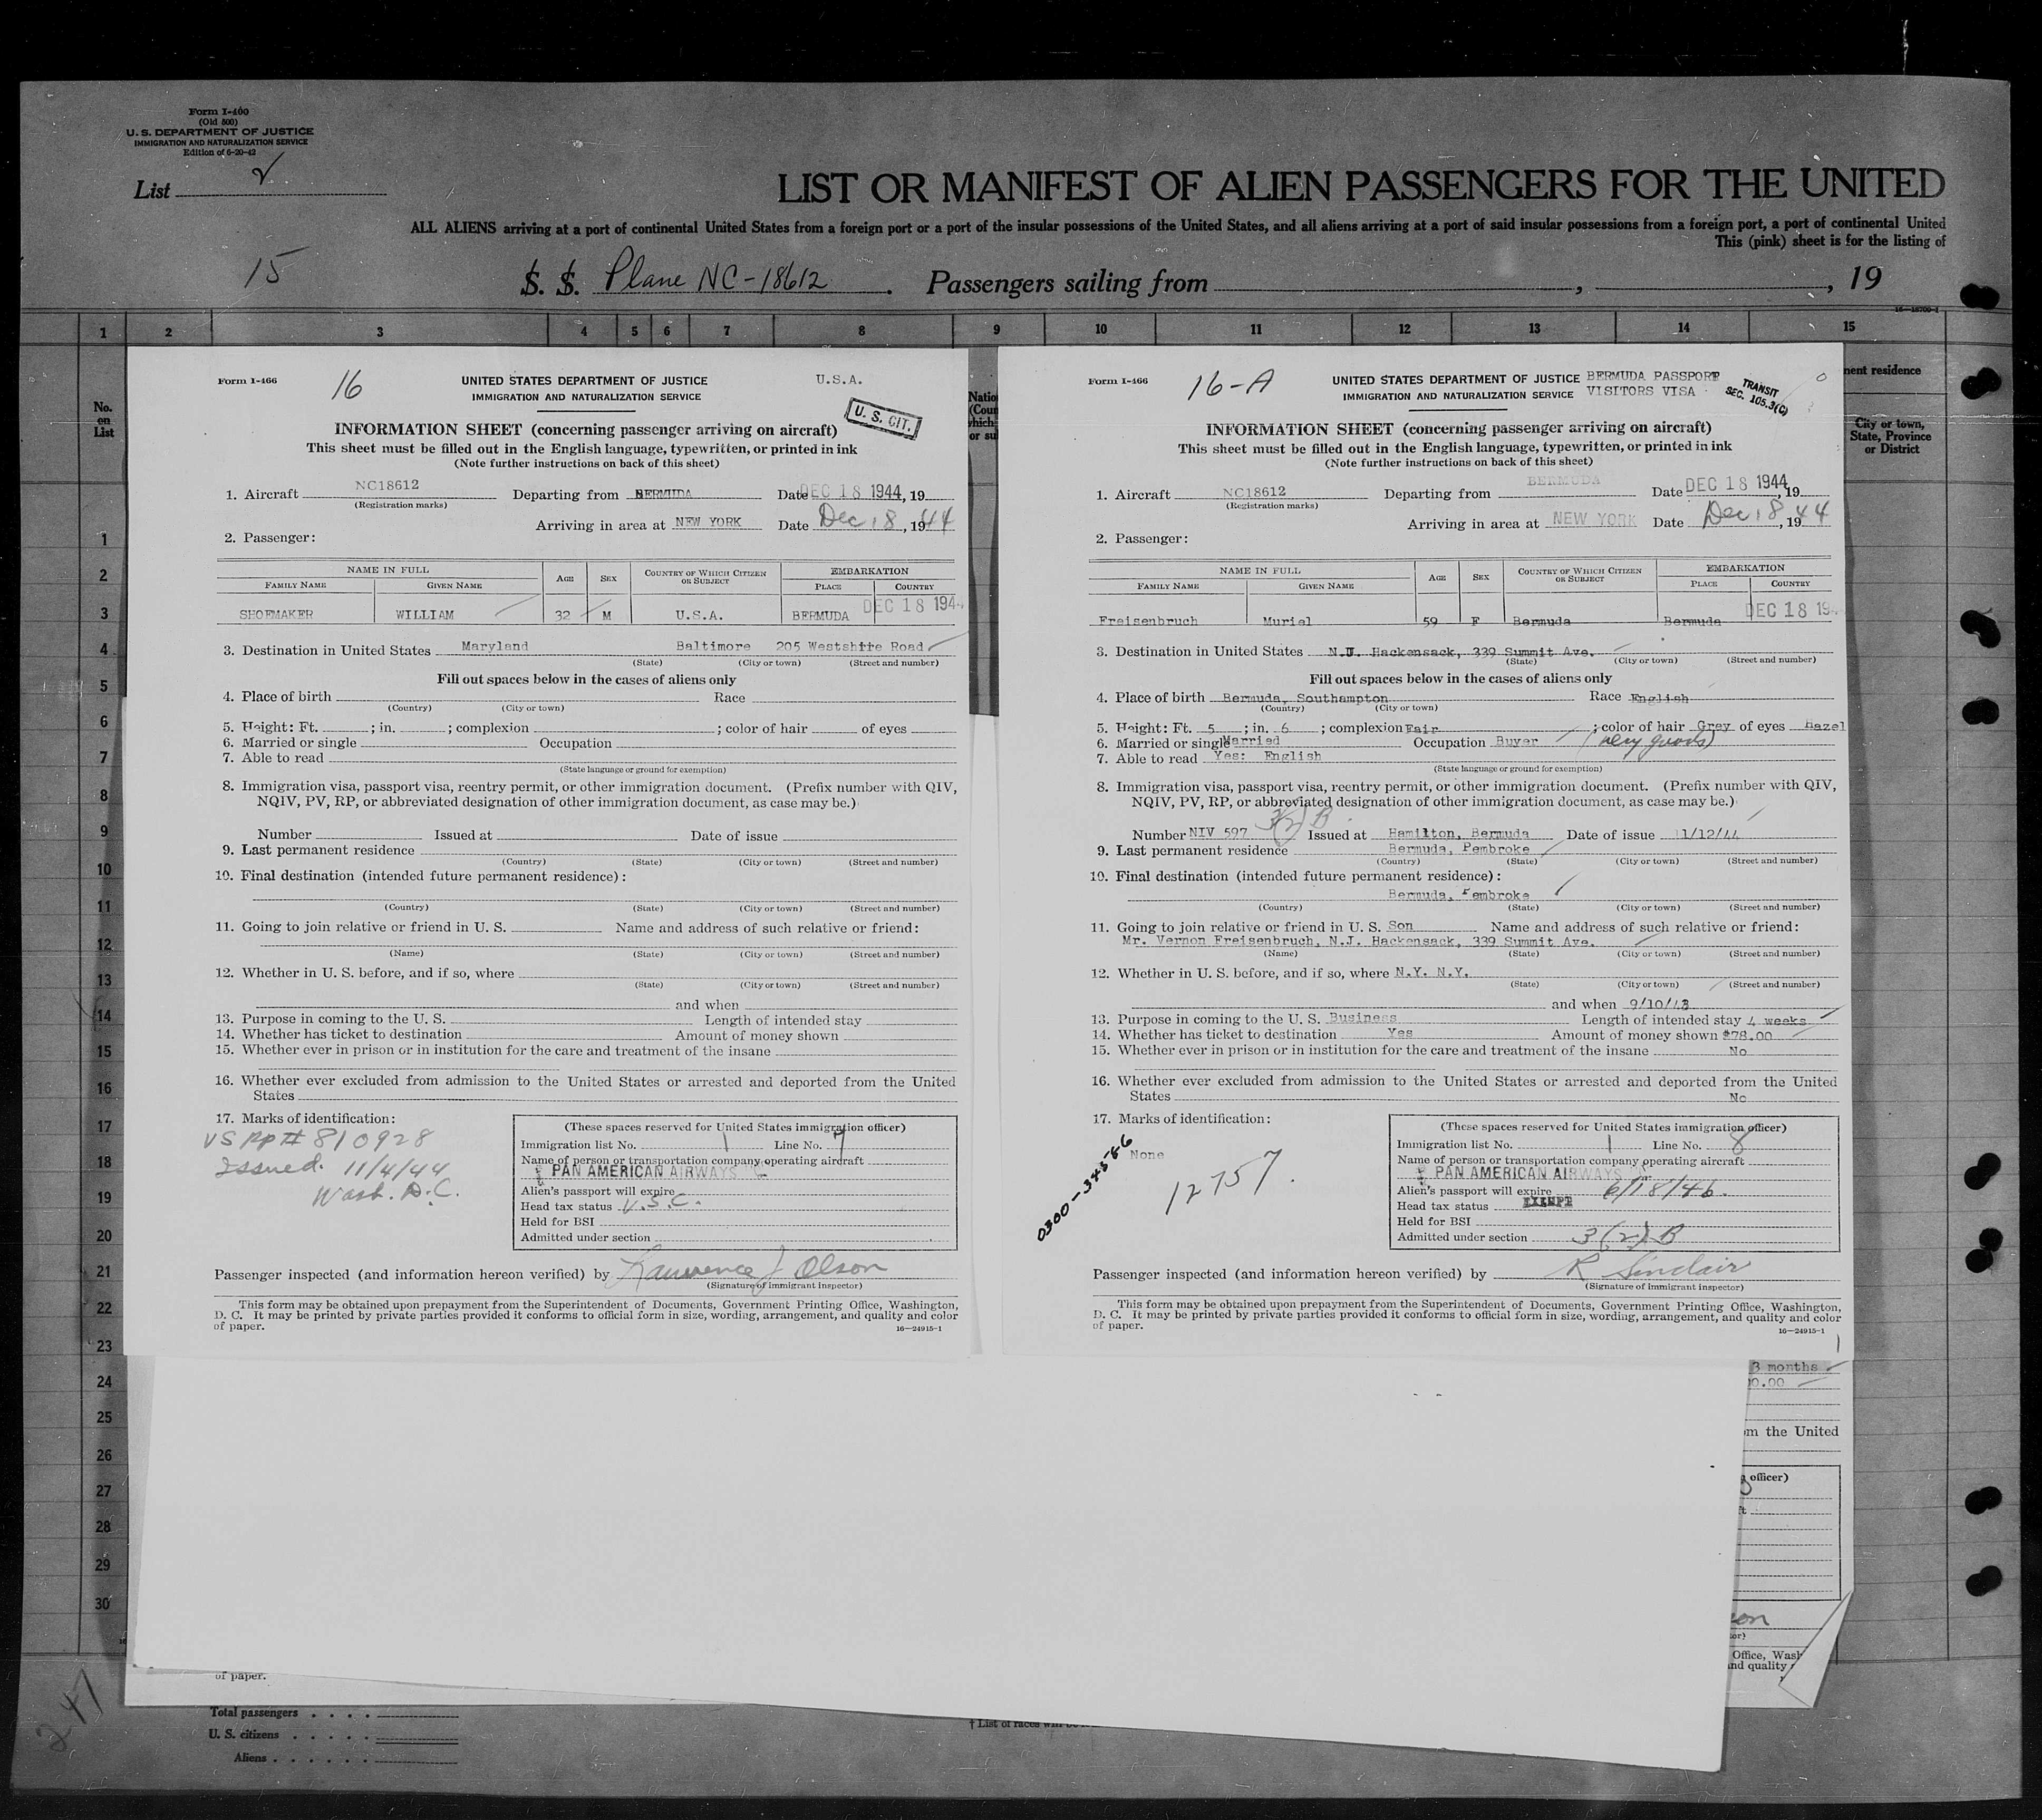 Form I-400
(Old 500)
U. S. DEPARTMENT OF JUSTICE
IMMIGRATION AND NATURALIZATION SERVICE
Edition of 6-20-42
List 2
LIST OR MANIFEST OF ALIEN PASSENGERS FOR THE UNITED
ALL ALIENS arriving at a port of continental United States from a foreign port or a port of the insular possessions of the United States, and all aliens arriving at a port of said insular possessions from a foreign port, a port of continental United
This (pink) sheet is for the listing of
15
S. S. Plane NC-18612. Passengers sailing from , , 19
1 2 3 4 5 6 7 8 9 10 11 12 13 14 15
No.
on
List
1
2
3
4
5
6
7
8
9
10
11
12
13
14
15
16
17
18
19
20
21
22
23
24
25
26
27
28
29
30
Form I-466
16
UNITED STATES DEPARTMENT OF JUSTICE
IMMIGRATION AND NATURALIZATION SERVICE
U.S.A.
U. S. CIT.
INFORMATION SHEET (concerning passenger arriving on aircraft)
This sheet must be filled out in the English language, typewritten, or printed in ink
(Note further instructions on back of this sheet)
1. Aircraft NC18612 Departing from BERMUDA Date DEC 18 1944, 19
(Registration marks)
Arriving in area at NEW YORK Date Dec 18, 1944
2. Passenger:
NAME IN FULL
FAMILY NAME GIVEN NAME AGE SEX COUNTRY OF WHICH CITIZEN OR SUBJECT EMBARKATION
PLACE COUNTRY
SHOEMAKER WILLIAM 32 M U.S.A. BERMUDA DEC 18 194
3. Destination in United States Maryland Baltimore 205 Westshire Road
(State) (City or town) (Street and number)
Fill out spaces below in the cases of aliens only
4. Place of birth Race
(Country) (City or town)
5. Height: Ft. ; in. ; complexion ; color of hair of eyes
6. Married or single Occupation
7. Able to read
(State language or ground for exemption)
8. Immigration visa, passport visa, reentry permit, or other immigration document. (Prefix number with QIV,
NQIV, PV, RP, or abbreviated designation of other immigration document, as case may be.)
Number Issued at Date of issue
9. Last permanent residence
(Country) (State) (City or town) (Street and number)
10. Final destination (intended future permanent residence):
(Country) (State) (City or town) (Street and number)
11. Going to join relative or friend in U. S. Name and address of such relative or friend:
(Name) (State) (City or town) (Street and number)
12. Whether in U. S. before, and if so, where
(State) (City or town) (Street and number)
and when
13. Purpose in coming to the U. S. Length of intended stay
14. Whether has ticket to destination Amount of money shown
15. Whether ever in prison or in institution for the care and treatment of the insane
16. Whether ever excluded from admission to the United States or arrested and deported from the United
States
17. Marks of identification:
US PP# 810928
Issued. 11/4/44
Wash. D.C.
(These spaces reserved for United States immigration officer)
Immigration list No. 1 Line No. 7
Name of person or transportation company operating aircraft
PAN AMERICAN AIRWAYS
Alien's passport will expire
Head tax status U.S.C.
Held for BSI
Admitted under section
Passenger inspected (and information hereon verified) by Lawrence J Olson
(Signature of immigrant inspector)
This form may be obtained upon prepayment from the Superintendent of Documents, Government Printing Office, Washington,
D. C. It may be printed by private parties provided it conforms to official form in size, wording, arrangement, and quality and color
of paper.
16—24915-1
Natio
(Coun
which
or su
Form I-466
16-A
UNITED STATES DEPARTMENT OF JUSTICE BERMUDA PASSPORT
IMMIGRATION AND NATURALIZATION SERVICE VISITORS VISA
TRANSIT
SEC. 105.3(C)
INFORMATION SHEET (concerning passenger arriving on aircraft)
This sheet must be filled out in the English language, typewritten, or printed in ink
(Note further instructions on back of this sheet)
1. Aircraft NC18612 Departing from BERMUDA Date DEC 18 1944, 19
(Registration marks)
Arriving in area at NEW YORK Date Dec 18, 1944
2. Passenger:
NAME IN FULL
FAMILY NAME GIVEN NAME AGE SEX COUNTRY OF WHICH CITIZEN OR SUBJECT EMBARKATION
PLACE COUNTRY
Freisenbruch Muriel 59 F Bermuda Bermuda DEC 18 19
3. Destination in United States N.J. Hackensack, 339 Summit Ave.
(State) (City or town) (Street and number)
Fill out spaces below in the cases of aliens only
4. Place of birth Bermuda, Southampton Race English
(Country) (City or town)
5. Height: Ft. 5 ; in. 6 ; complexion Fair ; color of hair Grey of eyes Hazel
6. Married or single Married Occupation Buyer (Dry goods)
7. Able to read Yes: English
(State language or ground for exemption)
8. Immigration visa, passport visa, reentry permit, or other immigration document. (Prefix number with QIV,
NQIV, PV, RP, or abbreviated designation of other immigration document, as case may be.)
Number NIV 597 3(2) B Issued at Hamilton, Bermuda Date of issue 11/12/44
9. Last permanent residence Bermuda, Pembroke
(Country) (State) (City or town) (Street and number)
10. Final destination (intended future permanent residence):
Bermuda, Pembroke
(Country) (State) (City or town) (Street and number)
11. Going to join relative or friend in U. S. Son Name and address of such relative or friend:
Mr. Vernon Freisenbruch, N.J. Hackensack, 339 Summit Ave.
(Name) (State) (City or town) (Street and number)
12. Whether in U. S. before, and if so, where N.Y. N.Y.
(State) (City or town) (Street and number)
and when 9/10/43
13. Purpose in coming to the U. S. Business Length of intended stay 4 weeks
14. Whether has ticket to destination Yes Amount of money shown $78.00
15. Whether ever in prison or in institution for the care and treatment of the insane No
16. Whether ever excluded from admission to the United States or arrested and deported from the United
States No
17. Marks of identification:
None
0300-34586
12757.
(These spaces reserved for United States immigration officer)
Immigration list No. 1 Line No. 8
Name of person or transportation company operating aircraft
PAN AMERICAN AIRWAYS
Alien's passport will expire 6/18/46.
Head tax status EXEMPT
Held for BSI
Admitted under section 3(2) B
Passenger inspected (and information hereon verified) by R Sinclair
(Signature of immigrant inspector)
This form may be obtained upon prepayment from the Superintendent of Documents, Government Printing Office, Washington,
D. C. It may be printed by private parties provided it conforms to official form in size, wording, arrangement, and quality and color
of paper.
16—24915-1
nent residence
City or town,
State, Province
or District
3 months
0.00
m the United
officer)
Office, Wash
nd quality
of paper.
Total passengers
U. S. citizens
Aliens
† List of races will be
247